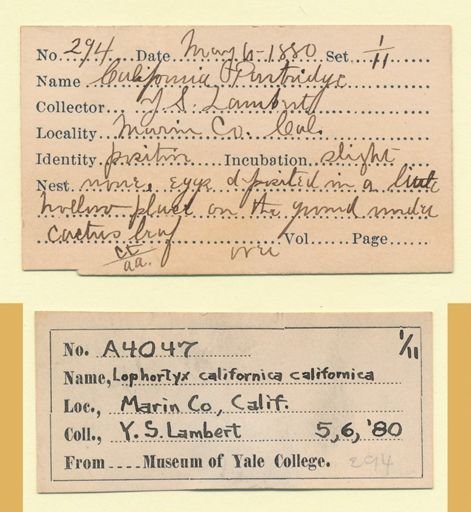 No. 294 Date May 6-1880 Set 1/11
Name California Partridge
Collector Y. S. Lambert
Locality Marin Co. Cal.
Identity positive Incubation slight
Nest none, eggs deposited in a little
hollow place on the ground under
cactus leaf Vol. Page
ct/aa. over
No. A4047 1/11
Name, Lophortyx californica californica
Loc., Marin Co, Calif.
Coll., Y. S. Lambert 5, 6, '80
From Museum of Yale College. 294